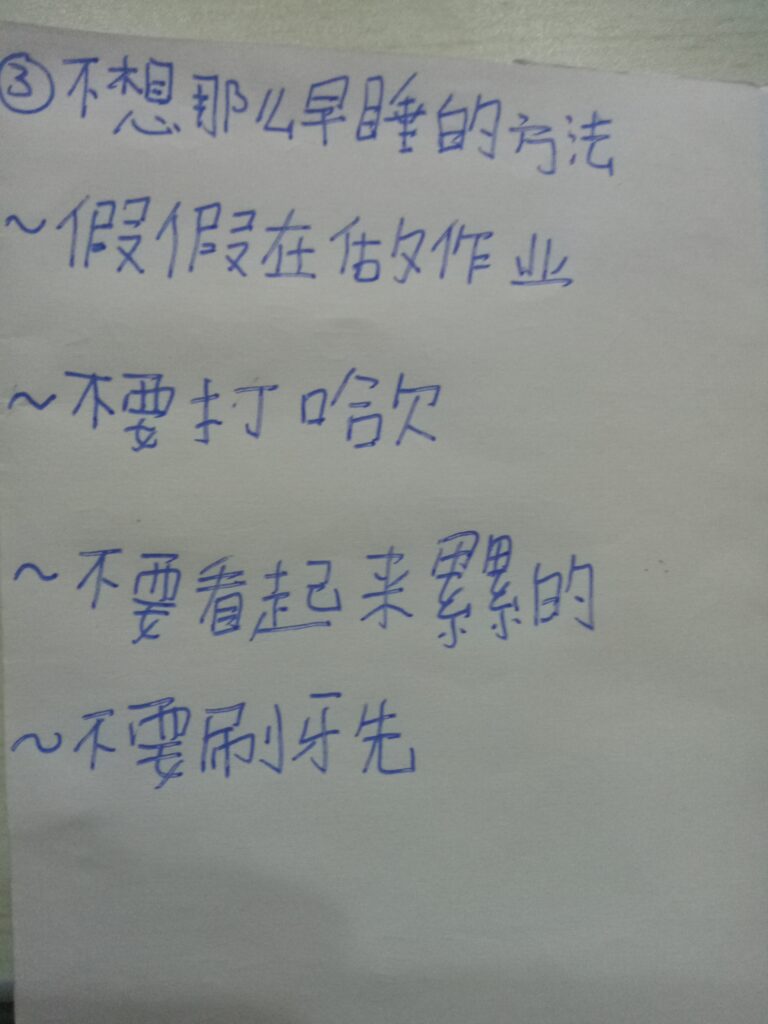 ③不想那么早睡的方法
~假假在做作业
~不要打哈欠
~不要看起来累累的
~不要刷牙先